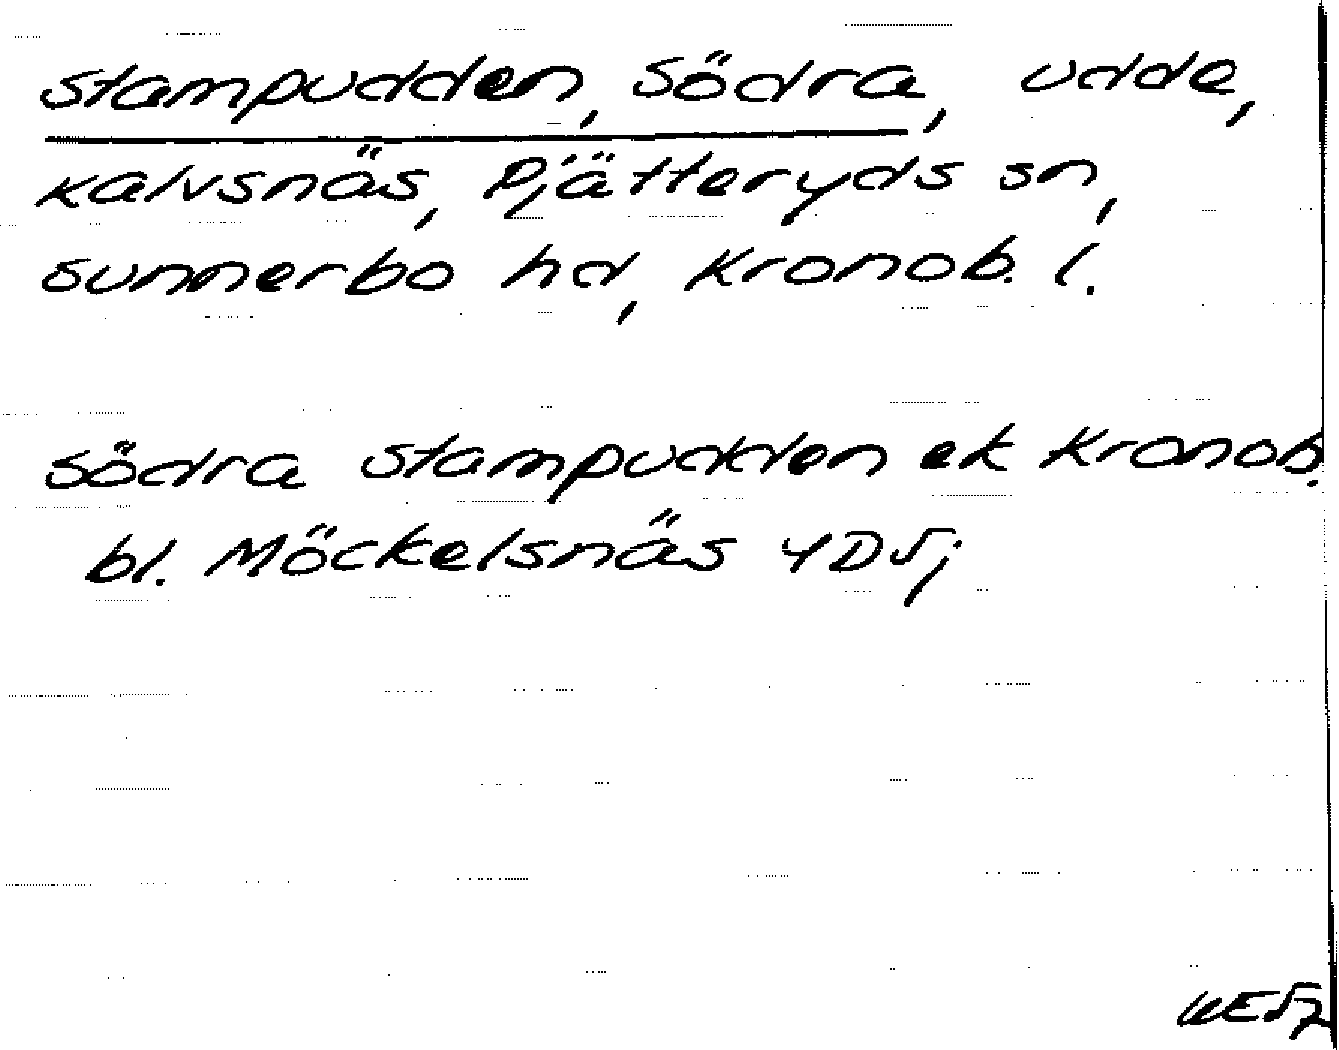 Stampudden, Södra, udde,
Kalvsnäs, Pjätteryds sn,
Sunnerbo hd, Kronob. l.
Södra Stampudden ek Kronob.
bl. Möckelsnäs 4D5j